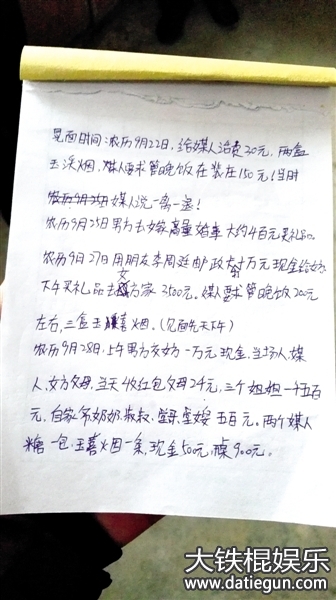 见面时间:农历9月22日,给媒人治费30元,两盒
玉溪烟,媒人要求管晚饭在 在150元(当时
农历9月25日媒人说一离一退!
农历9月25日男方去 家商量婚事大约4百元买礼品。
农历9月27日用朋友李周廷邮政 1万元现金给
下午买礼品去女方家3500元。媒人要求管晚饭200元
左右,三盒玉 烟。(见面 天下午)
农历9月28日,上午男方交女方一万元现金,当场人,媒
人、女方父母,当天4个红包父母24元,三个姐姐一千五百
元,自家爷奶奶叔叔、 五百元。两个媒人
糖一包,玉 烟一条,现金50元, 900元。
大铁棍娱乐
www.datiegun.com